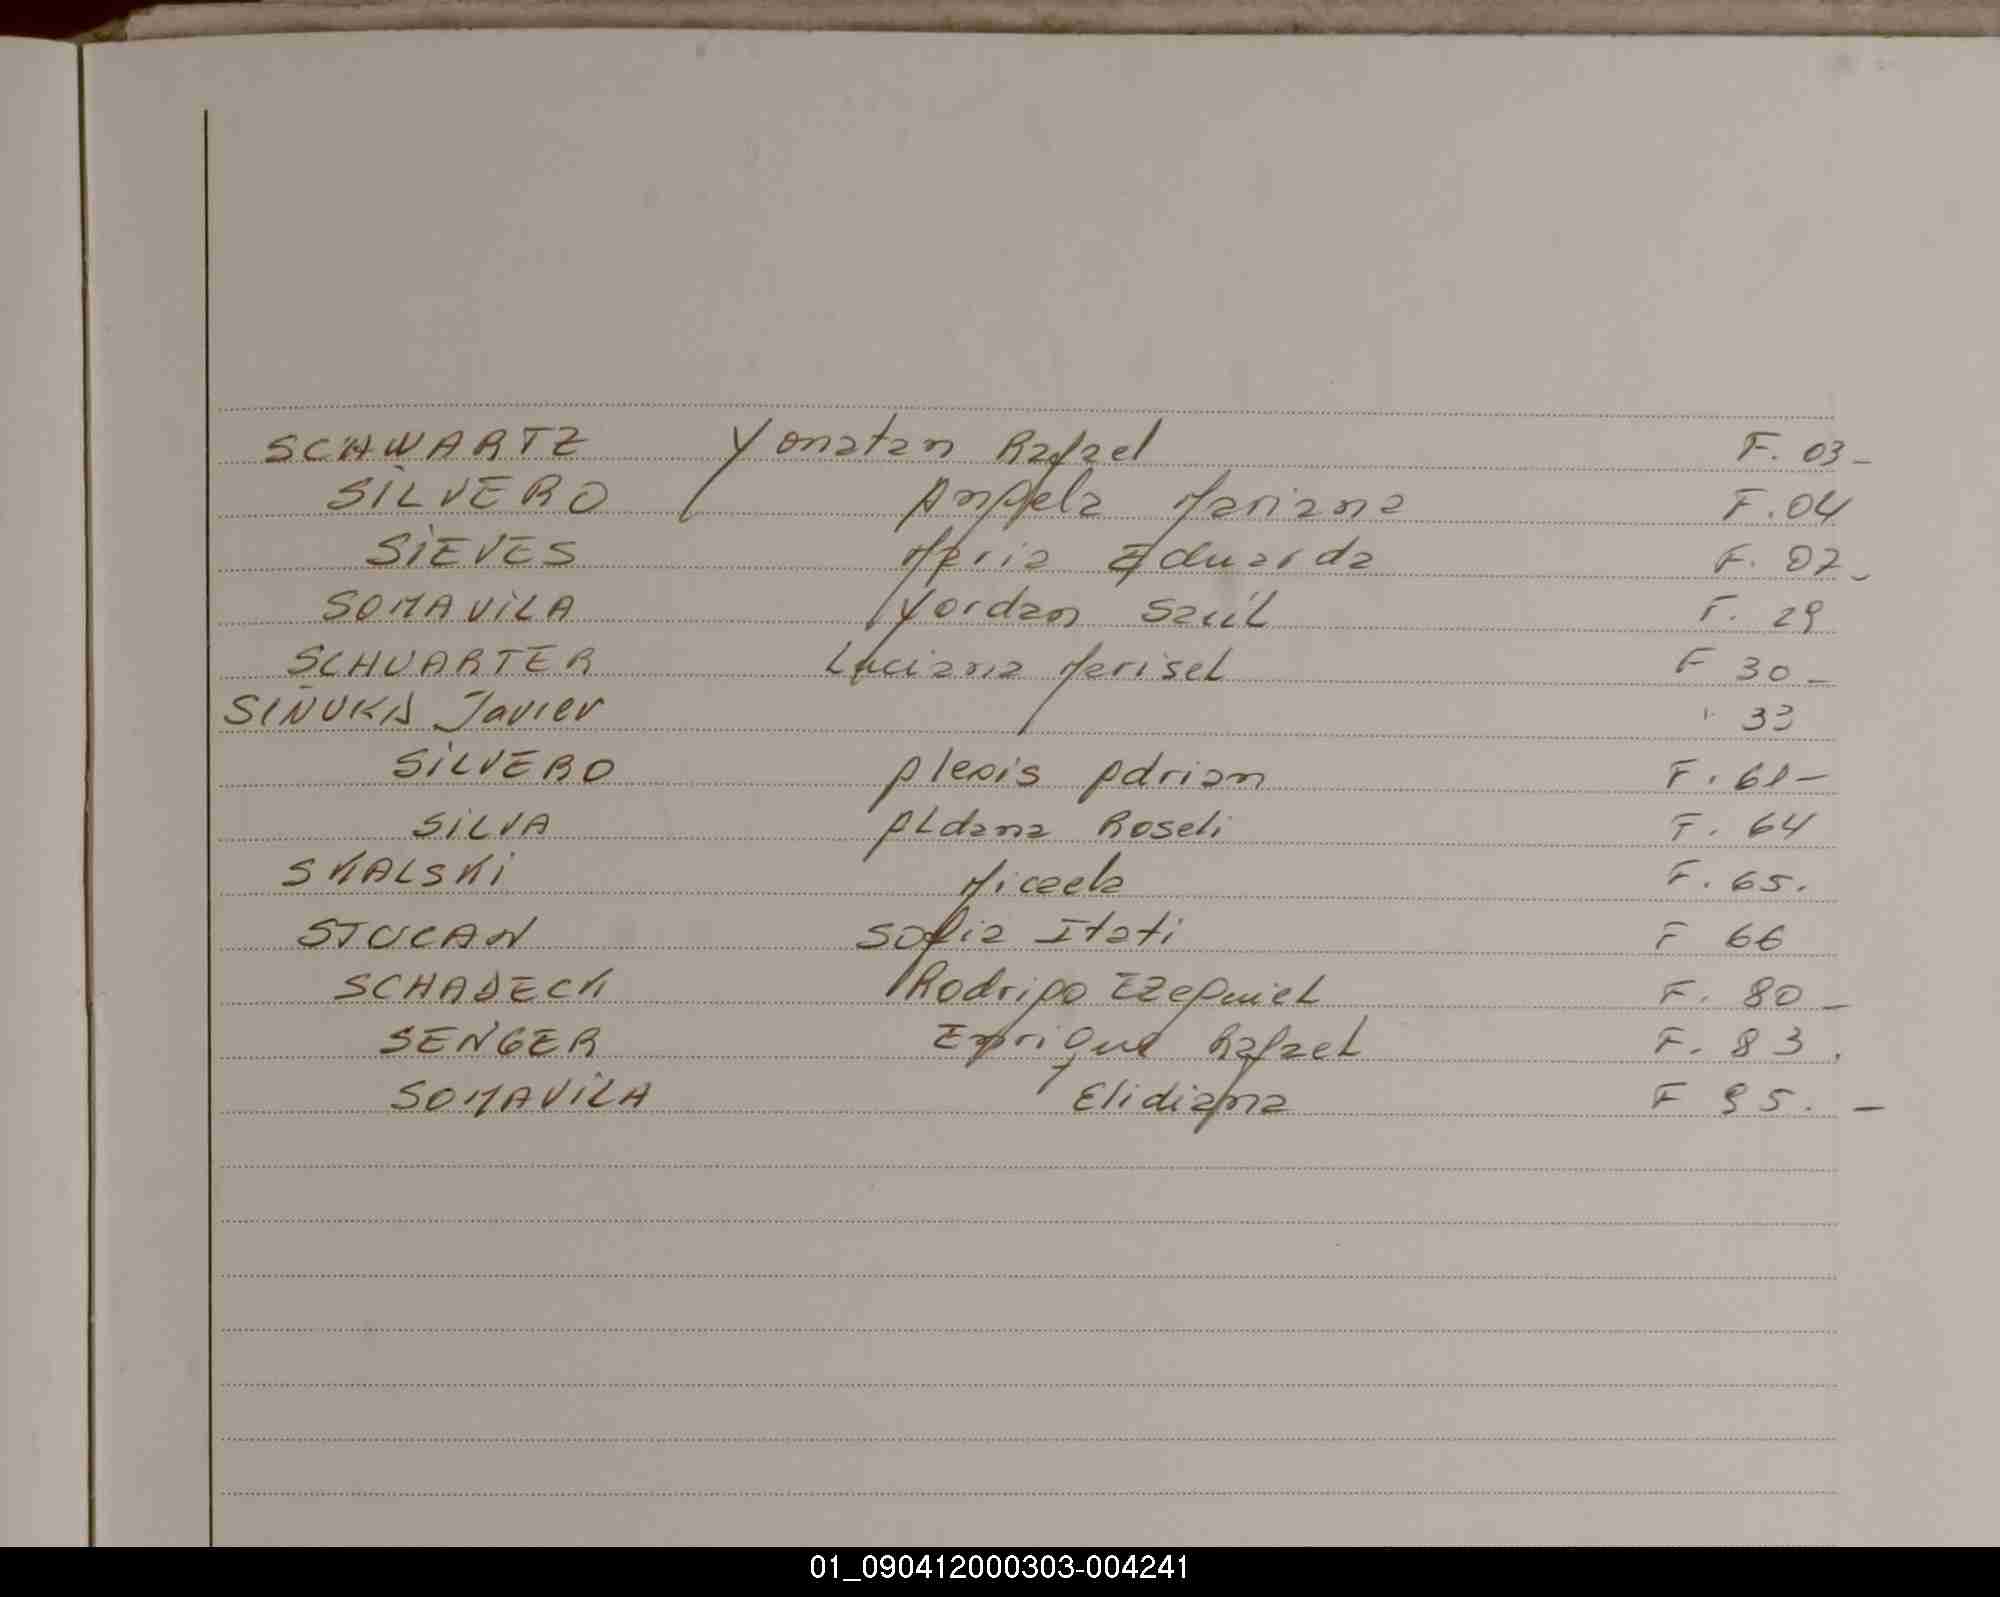 SCHWARTZ Yonatan Rafael F. 03-
SILVERO Angela Mariana F. 04
SIEVES Maria Eduarda F. 07-
SOMAVILA Yordan Saúl F. 29
SCHUARTER Luciana Marisel F 30-
SIÑUKA Javier " 33
SILVERO Alexis Adrian F. 61-
SILVA Aldana Roseli F. 64
SKALSKI Micaela F. 65.
STUCAN Sofia Itati F 66
SCHADECK Rodrigo Ezequiel F. 80-
SENGER Enrique Rafael F. 83.
SOMAVILA Elidiana F 95. -
01_090412000303-004241